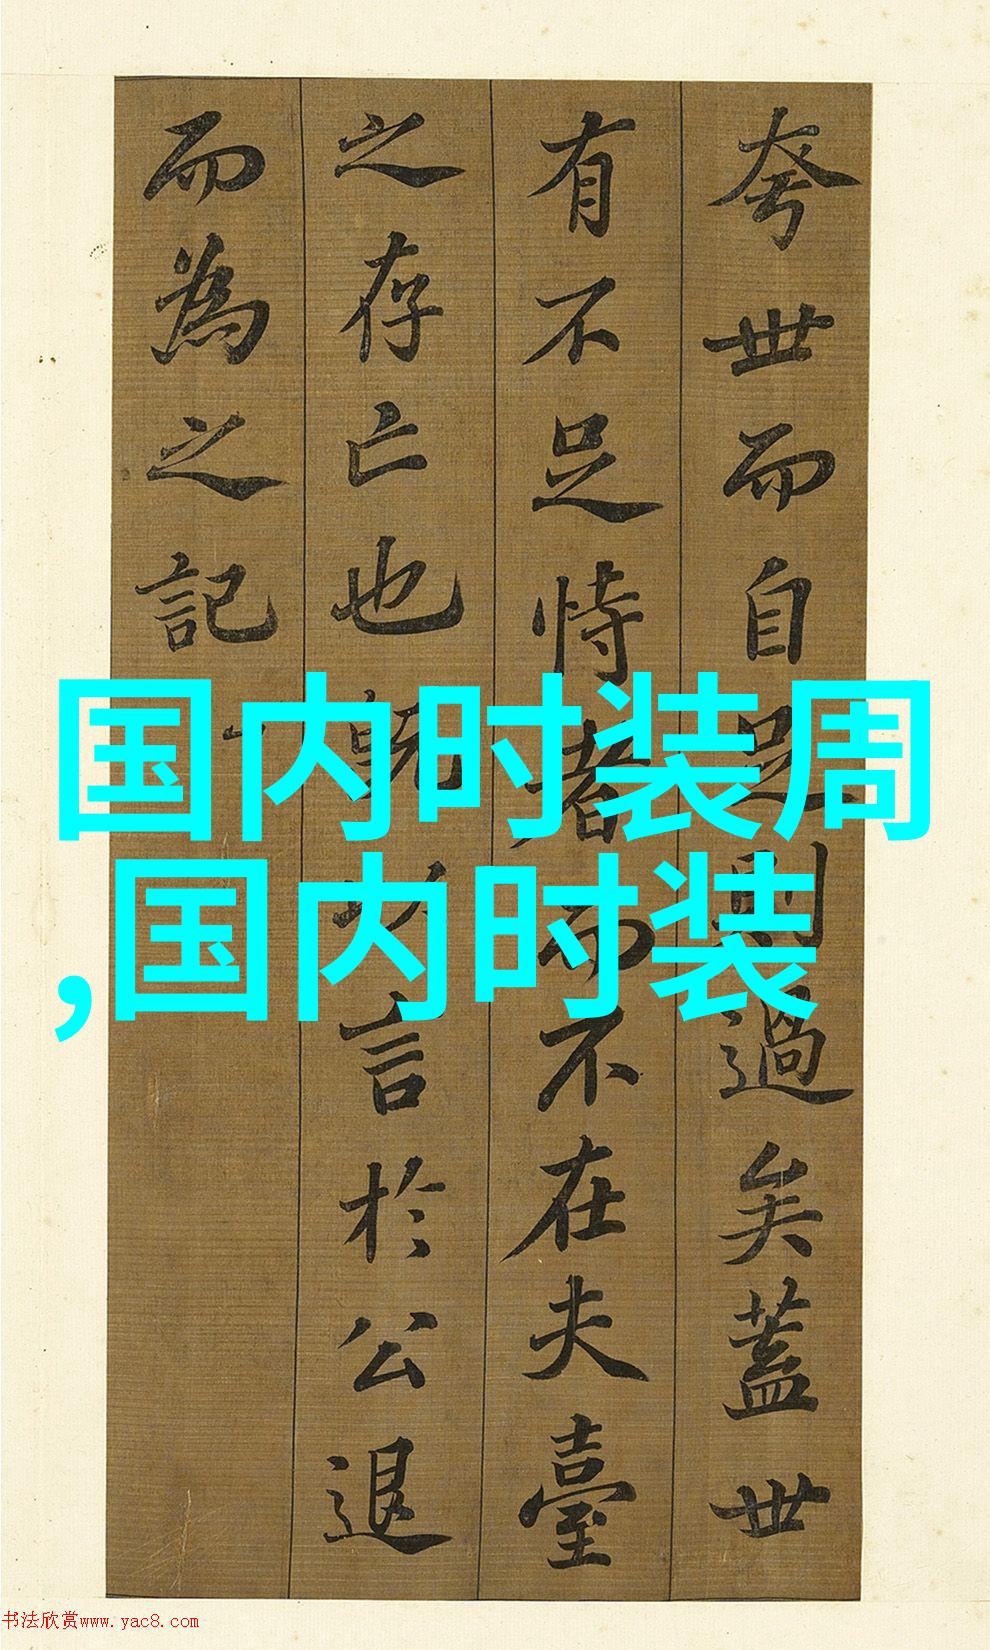 夸世而自足則過矣蓋世
有不足恃者而不在夫臺
之存亡也既以言於公退
而為之記
国内时装周
,国内时装
书法欣赏www.yac8.com